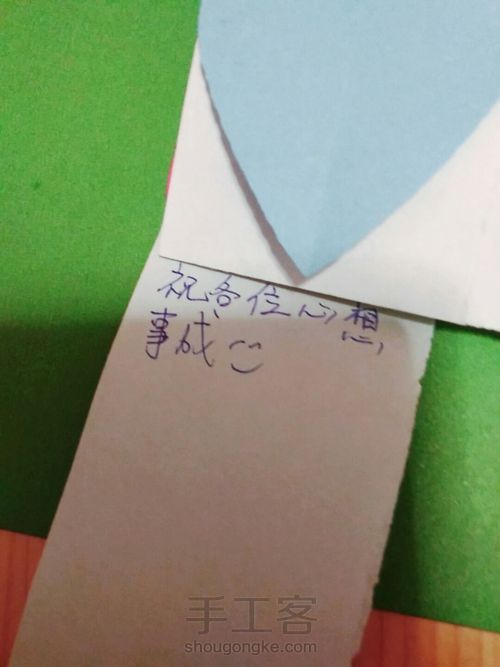 祝各位心想
事成
手工客
shougongke.com